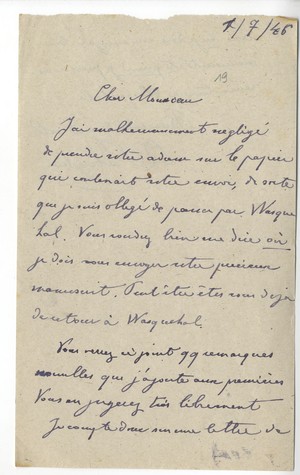 1/7/46
19
Cher Monsieur
J'ai malheureusement négligé
de prendre votre adresse sur le papier
qui contenait votre envoi, de sorte
que je suis obligé de passer par Wasque
hal. Vous voudrez bien me dire où
je dois vous envoyer votre précieux
manuscrit. Peut être êtes vous déjà
de retour à Wasquehal.
Vous verrez ci joint qq remarques
nouvelles que j'ajoute aux premières
Vous en jugerez très librement
Je compte donc sur une lettre de